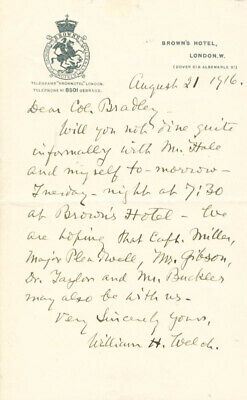 BROWN'S HOTEL,
LONDON.W.
(DOVER & ALBEMARLE ST)
TELEGRAMS "BROWNOTEL" LONDON.
TELEPHONE Nº 8501 GERRARD.
August 21 1916.
Dear Col. Bradley -
Will you not dine quite
informally with Mr. Hale
and myself to-morrow -
Tuesday - night at 7:30
at Brown's Hotel - We
are hoping that Capt. Miller,
Major Plotwell, Mr. Gibson,
Dr. Taylor and Mr. Buckler
may also be with us -
Very Sincerely Yours,
William H. Welch.